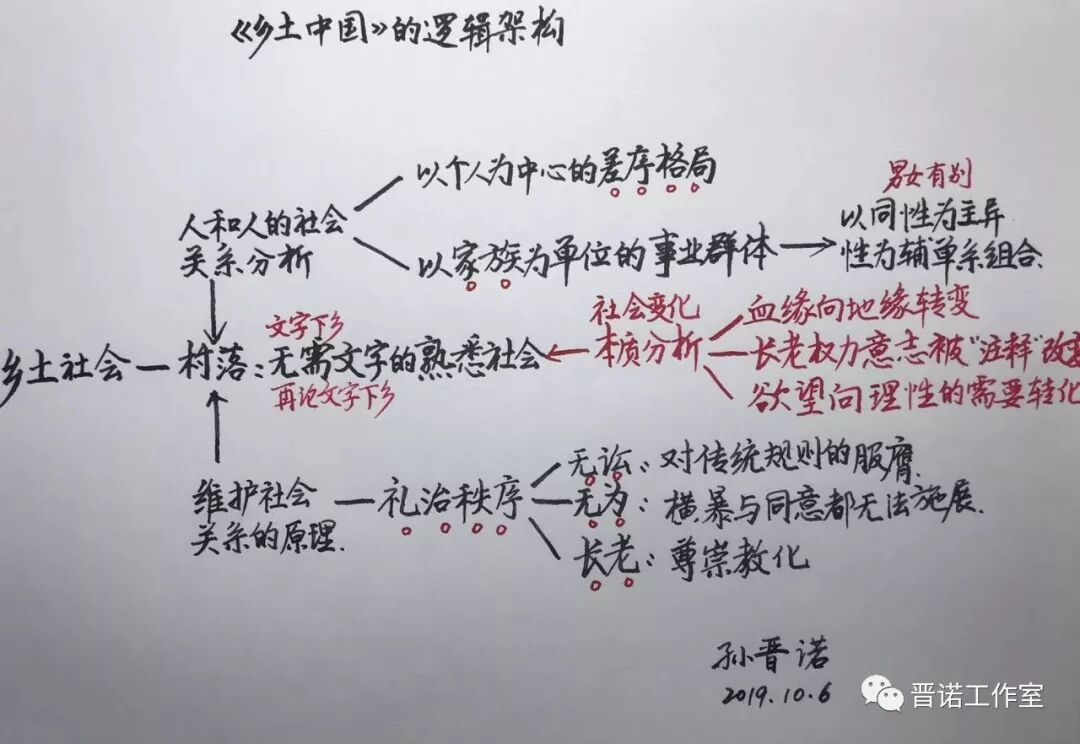 《乡土中国》的逻辑架构
以个人为中心的差序格局
男女有别
人和人的社会
关系分析
以同性为主异
性为辅"单系组合
以家族为单位的事业群体
社会变化
血缘向地缘转变
文字下乡
乡土社会—村落:无需文字的熟悉社会
本质分析
长老权力意志被"注释"改
再论文字下乡
欲望向理性的需要转化
无讼:对传统规则的服膺.
维护社会
关系的原理.
礼治秩序
无为:横暴与同意都无法施展.
长老:尊崇教化
孙晋诺
2019.10.6
晋诺工作室